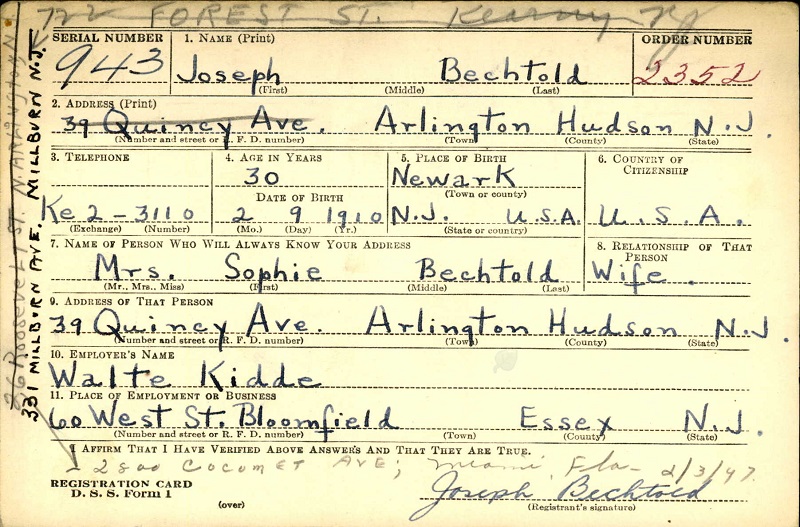 722 FOREST ST. Kearny NJ
SERIAL NUMBER 1. NAME (Print) ORDER NUMBER
943 Joseph Bechtold 2352
(First) (Middle) (Last)
2. ADDRESS (Print)
39 Quincy Ave. Arlington Hudson N.J.
(Number and street or R. F. D. number) (Town) (County) (State)
3. TELEPHONE 4. AGE IN YEARS 5. PLACE OF BIRTH 6. COUNTRY OF CITIZENSHIP
30 Newark
(Town or county)
DATE OF BIRTH
Ke 2-3110 2 9 1910 N.J. U.S.A. U.S.A.
(Exchange) (Number) (Mo.) (Day) (Yr.) (State or country)
7. NAME OF PERSON WHO WILL ALWAYS KNOW YOUR ADDRESS 8. RELATIONSHIP OF THAT PERSON
Mrs. Sophie Bechtold Wife.
(Mr., Mrs., Miss) (First) (Middle) (Last)
9. ADDRESS OF THAT PERSON
39 Quincy Ave. Arlington Hudson N.J.
(Number and street or R. F. D. number) (Town) (County) (State)
10. EMPLOYER'S NAME
Walte Kidde
11. PLACE OF EMPLOYMENT OR BUSINESS
60 West St. Bloomfield Essex N.J.
(Number and street or R. F. D. number) (Town) (County) (State)
I AFFIRM THAT I HAVE VERIFIED ABOVE ANSWERS AND THAT THEY ARE TRUE.
2800 Cocomet AVE; Miami, Fla- 2/3/47
REGISTRATION CARD
D. S. S. Form 1
(over)
Joseph Bechtold
(Registrant's signature)
26 Roosevelt ST. N. ARLINGTON N.J.
331 MILLBURN AVE. MILLBURN N.J.